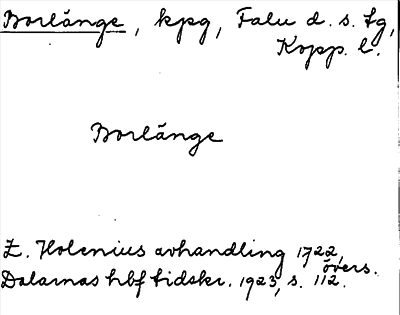 Borlänge, kpg, Falu d. s. tg,
Kopp. l.
Borlänge
E. Holenius avhandling 1722, övers.
Dalarnas hbf tidskr. 1923, s. 112.